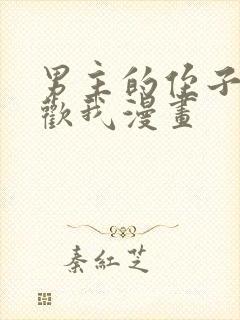 男主的侄子
歡我漫畫
秦紅芝